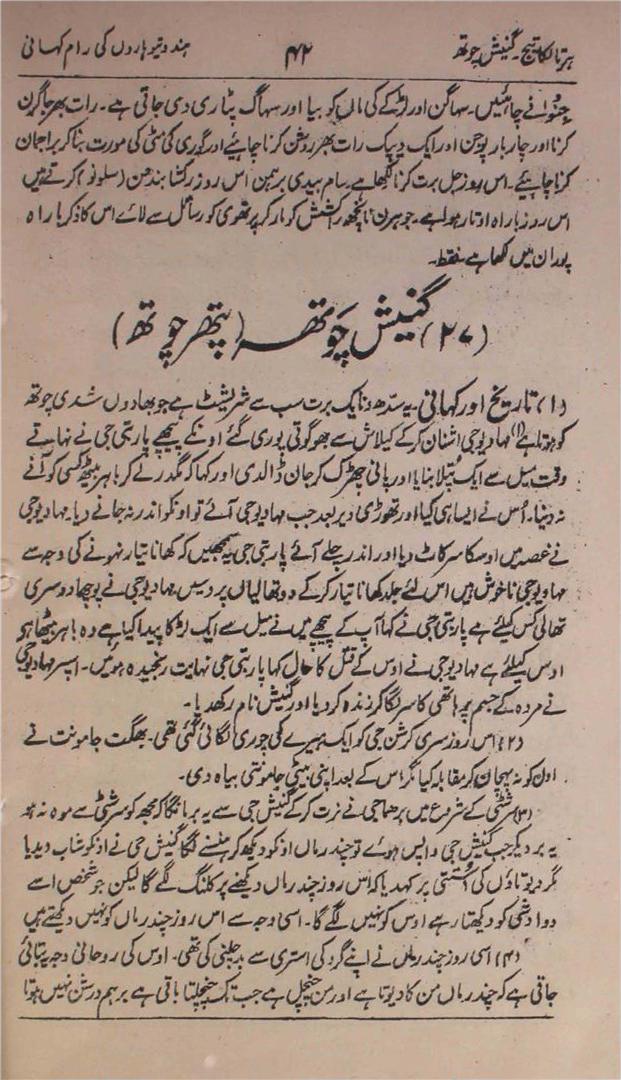 ہرتالکا تیج۔ گنیش چوتھ ۴۲ ہندو تیوہاروں کی رام کہانی
چاہئیں۔ سہاگن اور لڑکے کی ماں کو بیا اور سہاگ پٹاری دی جاتی ہے۔ رات بھر جاگرن
کرنا اور چار بار پوجن اور ایک دیپک رات بھر روشن کرنا چاہئے اور گوری کی مٹی کی مورت بنا کر براجمان
کرنا چاہیئے۔ اس روز جل برت کرنا لکھا ہے۔ سام بیدی برہمن اس روز رکشا بندھن (سلونو) کرتے ہیں
اس روز باراہ اوتار ہوا ہے۔ جو ہرن راکشش کو مار کر پرتھوی کو رساتل سے لائے اس کا ذکر باراہ
پوران میں لکھا ہے۔ فقط۔
(۲۷) گنیش چوتھ (پتھر چوتھ)
(۱) تاریخ اور کہانی۔ یہ سدھ ونایک برت سب سے شریشٹ ہے جو بھادوں شدی چوتھ
کو ہوتا ہے (۱) مہادیوجی اشنان کرکے کیلاش سے بھوگوتی پوری گئے اونکے پیچھے پاربتی جی نے نہاتے
وقت میل سے ایک پتلا بنایا اور پانی چھڑک کر جان ڈالدی اور کہا کہ مگدر لے کر باہر بیٹھ کسی کو آنے
نہ دینا۔ اُس نے ایسا ہی کیا اور تھوڑی دیر بعد جب مہادیوجی آئے تو اونکو اندر نہ جانے دیا۔ مہادیوجی
نے غصہ میں اوسکا سر کاٹ دیا اور اندر چلے آئے پاربتی جی یہ سمجھیں کہ کھانا تیار نہونے کی وجہ سے
مہادیوجی ناخوش ہیں اس لئے جلد کھانا تیار کرکے دو تھالیاں پردسیں۔ مہادیوجی نے پوچھا دوسری
تھالی کس کیلئے ہے پاربتی جی نے کہا آپ کے پیچھے میں نے میل سے ایک لڑکا پیدا کیا ہے وہ باہر بیٹھا ہو
اوس کیلئے ہے مہادیوجی نے اوس کے قتل کا حال کہا پاربتی جی نہایت رنجیدہ ہوئیں۔ اسپر مہادیوجی
نے مردہ کے جسم پر ہاتھی کا سر لگا کر زندہ کردیا اور گنیش نام رکھدیا۔
(۲) اس روز سری کرشن جی کو ایک ہیرے کی چوری لگائی گئی تھی۔ بھگت جامونت نے
اول کو نہ پہچان کر مقابلہ کیا مگر اس کے بعد اپنی بیٹی جامونتی بیاہ دی۔
(۳) سرشٹی کے شروع میں برھماجی نے نرت کرکے گنیش جی سے یہ بر مانگا کہ مجھ کو سرشٹی سے موہ نہ ہو
یہ بر دیکر جب گنیش جی واپس ہوئے تو چندرماں اونکو دیکھ کر ہنسنے لگا گنیش جی نے اونکو شاپ دیدیا
مگر دیوتاؤں کی اُستتی پر کہدیا کہ اس روز چندرماں دیکھنے پر کلنک لگے گا لیکن جو شخص اسے
دوادشی کو دیکھتا رہے اوس کو نہیں لگے گا۔ اسی وجہ سے اس روز چندرماں کو نہیں دیکھتے ہیں
(۴) اسی روز چندرماں نے اپنے گرو کی استری سے بدچلنی کی تھی۔ اوس کی روحانی وجہ یہ بتائی
جاتی ہے کہ چندرماں من کا دیوتا ہے اور من چنچل ہے جب تک چنچلتا باقی ہے برہم درشن نہیں ہوتا